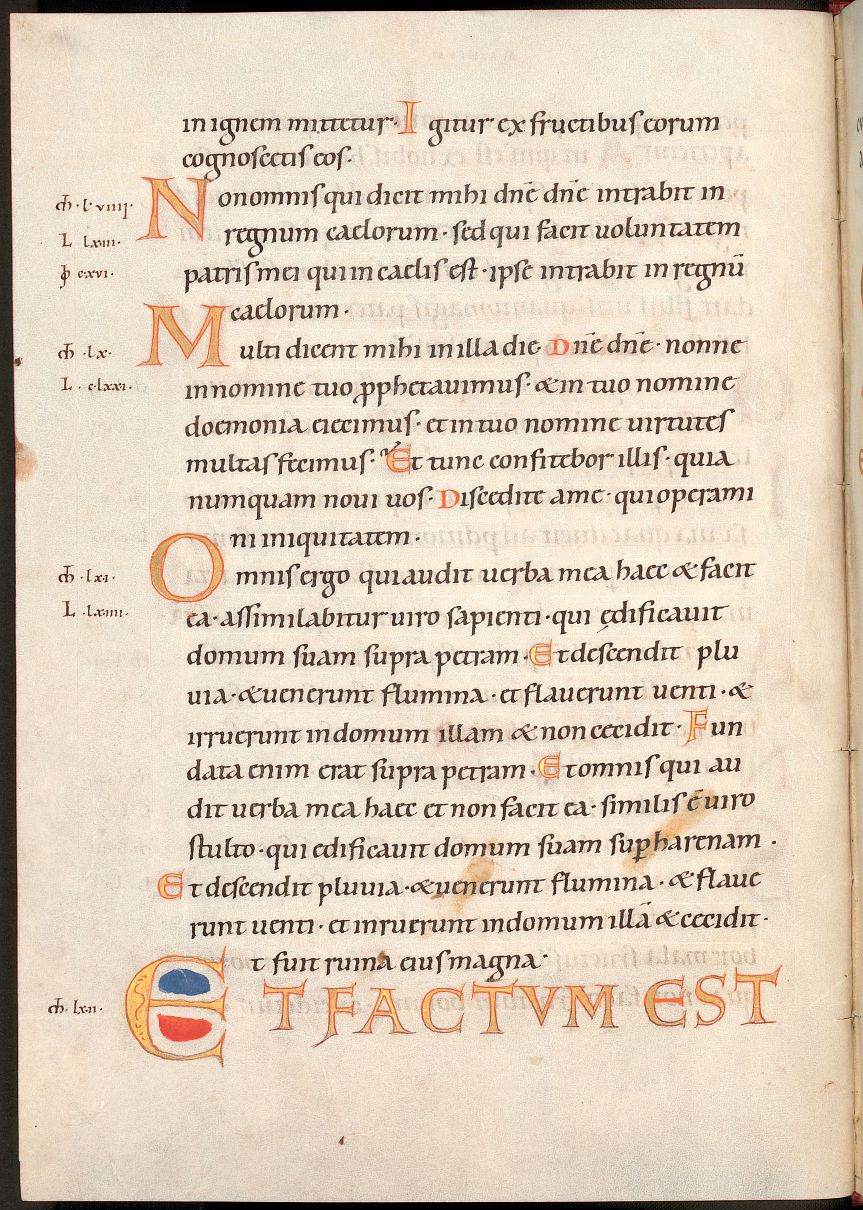 in ignem mittetur· Igitur ex fructibus eorum
cognoscetis eos·
Non omnis qui dicit mihi dn̄e dn̄e intrabit in
regnum caelorum· sed qui facit uoluntatem
patris mei qui in caelis est· ipse intrabit in regnū
caelorum·
Multi dicent mihi in illa die Dn̄e dn̄e· nonne
in nomine tuo ꝓphetauimus· & in tuo nomine
doemonia eiecimus· et in tuo nomine uirtutes
multas fecimus· Et tunc confitebor illis· quia
numquam noui uos· Discedite a me· qui operami
ni iniquitatem·
Omnis ergo qui audit uerba mea haec & facit
ea· assimilabitur uiro sapienti· qui ędificauit
domum suam supra petram· Et descendit plu
uia· & uenerunt flumina· et flauerunt uenti· &
irruerunt in domum illam & non cecidit· Fun
data enim erat supra petram· Et omnis qui au
dit uerba mea haec et non facit ea· similis ē uiro
stulto· qui edificauit domum suam suꝑ harenam·
Et descendit pluuia· & uenerunt flumina· & flaue
runt uenti· et inruerunt in domum illā & cecidit·
Et fuit ruina eius magna·
ET FACTVM EST
m̄· lviiii·
L lxiii·
ꝑ cxvi·
m̄ ·lx·
L· clxxi·
m̄ ·lxi·
L lxiiii·
m̄· lxii·